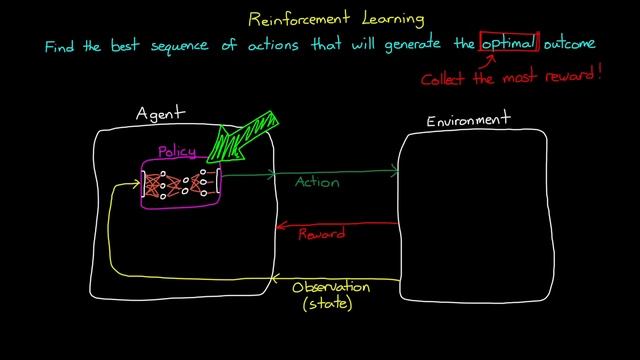 Reinforcement Learning
Find the best sequence of actions that will generate the optimal outcome
Collect the most reward!
Agent
Environment
Policy
Action
Reward
Observation
(state)